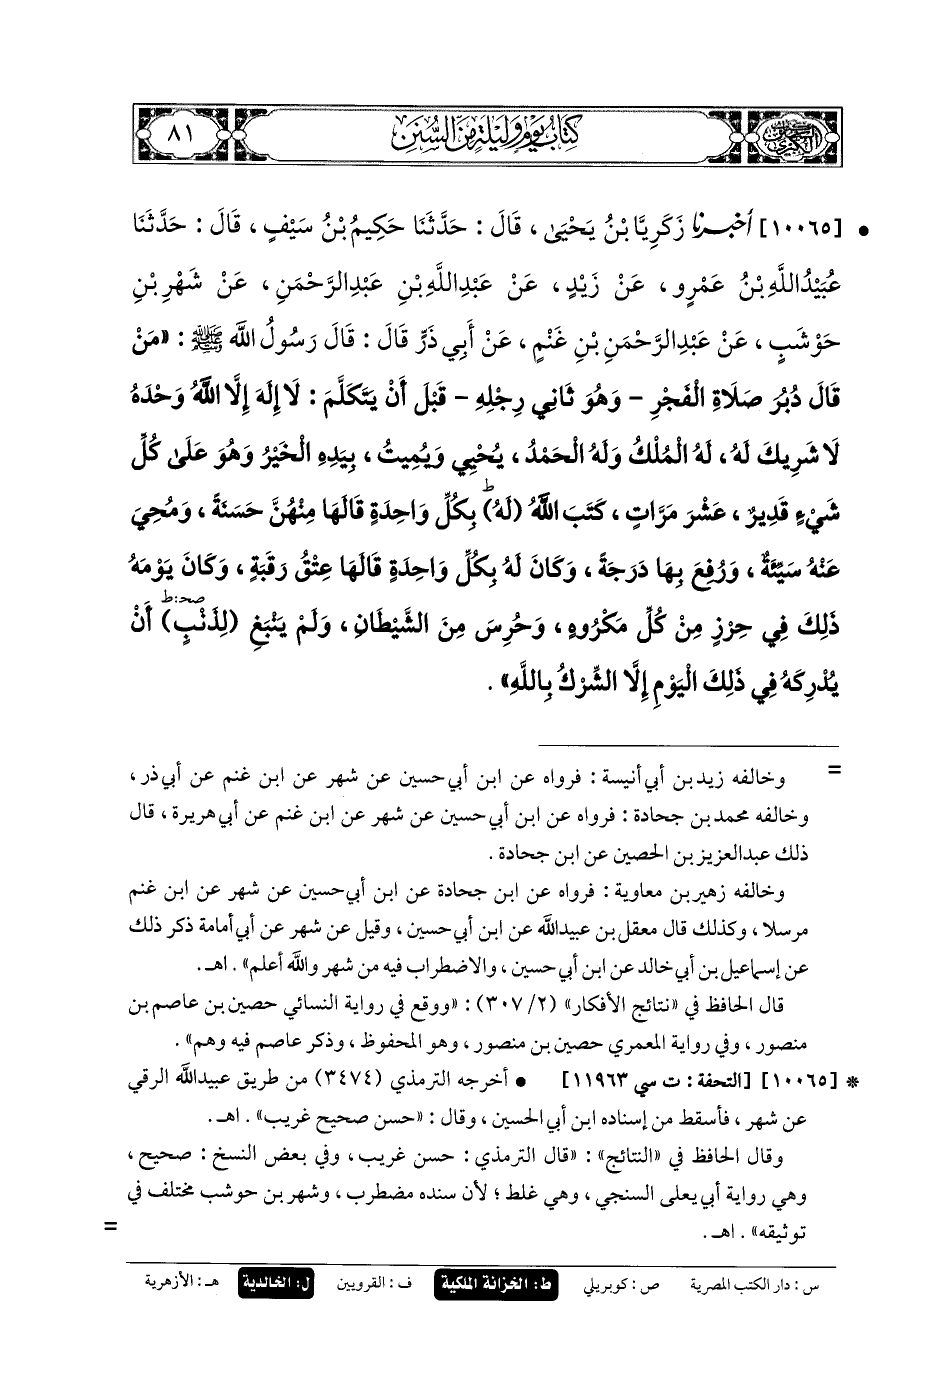 السنن الكبرى
كتاب يوم وليلة من السنن
٨١
• [١٠٠٦٥] أخبرنا زَكَرِيَّا بْنُ يَحْيَىٰ ، قَالَ : حَدَّثَنَا حَكِيمُ بْنُ سَيْفٍ ، قَالَ : حَدَّثَنَا
عُبَيْدُاللَّهِ بْنُ عَمْرٍو ، عَنْ زَيْدٍ ، عَنْ عَبْدِاللَّهِ بْنِ عَبْدِالرَّحْمَنِ ، عَنْ شَهْرِ بْنِ
حَوْشَبٍ ، عَنْ عَبْدِالرَّحْمَنِ بْنِ غَنْمٍ ، عَنْ أَبِي ذَرٍّ قَالَ : قَالَ رَسُولُ اللَّه ﷺ : «مَنْ
قَالَ دُبُرَ صَلَاةِ الْفَجْرِ - وَهُوَ ثَانِي رِجْلِهِ - قَبْلَ أَنْ يَتَكَلَّمَ : لَا إِلَهَ إِلَّا اللَّهُ وَحْدَهُ
لَا شَرِيكَ لَهُ ، لَهُ الْمُلْكُ وَلَهُ الْحَمْدُ ، يُحْيِي وَيُمِيتُ ، بِيَدِهِ الْخَيْرُ وَهُوَ عَلَىٰ كُلِّ
شَيْءٍ قَدِيرٌ ، عَشْرَ مَرَّاتٍ ، كَتَبَ اللَّهُ (لَهُ)ط بِكُلِّ وَاحِدَةٍ قَالَهَا مِنْهُنَّ حَسَنَةً ، وَمُحِيَ
عَنْهُ سَيِّئَةٌ ، وَرُفِعَ بِهَا دَرَجَةً ، وَكَانَ لَهُ بِكُلِّ وَاحِدَةٍ قَالَهَا عِتْقُ رَقَبَةٍ ، وَكَانَ يَوْمَهُ
ذَلِكَ فِي حِرْزٍ مِنْ كُلِّ مَكْرُوهٍ ، وَحُرِسَ مِنَ الشَّيْطَانِ ، وَلَمْ يَنْبَغِ (لِذَنْبٍ)صحـ:ط أَنْ
يُدْرِكَهُ فِي ذَلِكَ الْيَوْمِ إِلَّا الشِّرْكُ بِاللَّهِ» .
= وخالفه زيد بن أبي أنيسة : فرواه عن ابن أبي حسين عن شهر عن ابن غنم عن أبي ذر ،
وخالفه محمد بن جحادة : فرواه عن ابن أبي حسين عن شهر عن ابن غنم عن أبي هريرة ، قال
ذلك عبدالعزيز بن الحصين عن ابن جحادة .
وخالفه زهير بن معاوية : فرواه عن ابن جحادة عن ابن أبي حسين عن شهر عن ابن غنم
مرسلا ، وكذلك قال معقل بن عبيدالله عن ابن أبي حسين ، وقيل عن شهر عن أبي أمامة ذكر ذلك
عن إسماعيل بن أبي خالد عن ابن أبي حسين ، والاضطراب فيه من شهر والله أعلم» . اهـ .
قال الحافظ في «نتائج الأفكار» (٢/ ٣٠٧) : «ووقع في رواية النسائي حصين بن عاصم بن
منصور ، وفي رواية المعمري حصين بن منصور ، وهو المحفوظ ، وذكر عاصم فيه وهم» .
* [١٠٠٦٥] [التحفة : ت سي ١١٩٦٣] • أخرجه الترمذي (٣٤٧٤) من طريق عبيدالله الرقي
عن شهر ، فأسقط من إسناده ابن أبي الحسين ، وقال : «حسن صحيح غريب» . اهـ .
وقال الحافظ في «النتائج» : «قال الترمذي : حسن غريب ، وفي بعض النسخ : صحيح ،
وهي رواية أبي يعلى السنجي ، وهي غلط ؛ لأن سنده مضطرب ، وشهر بن حوشب مختلف في
توثيقه» . اهـ . =
س : دار الكتب المصرية ص : كوبريلي ط : الخزانة الملكية ف : القرويين ل : الخالدية هـ : الأزهرية